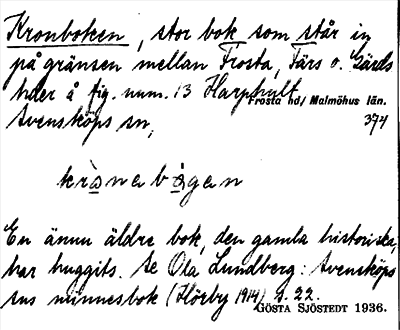 Kronboken, stor bok som står in
på gränsen mellan Frosta, Färs o. Gärds
hder å fig. num. 13 Harphult
Frosta hd/ Malmöhus län.
Svensköps sn, 374
krònabògan
En ännu äldre bok, den gamla historiska,
har huggits. Se Ola Lundberg: Svensköps
sns minnesbok (Hörby 1914) s. 22.
GÖSTA SJÖSTEDT 1936.